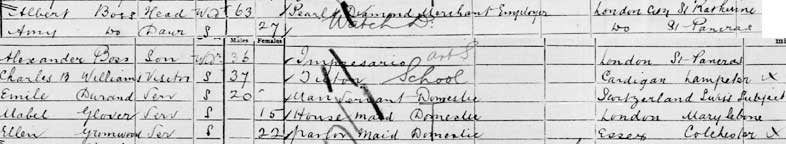 Albert Boss Head Wdr 63 Pearl & Diamond Merchant Employer London City St Katherine
Amy Do Daur S 27 Watch D. Do St Pancras
Males Females
Alexander Boss Son Wdr 36 Impresario art S London St Pancras
Charles B Williams Visitor S 37 Tutor School Cardigan Lampeter X
Emile Durand Serv S 20 Man Servant Domestic Switzerland Swiss Subject
Mabel Glover Serv S 15 House maid Domestic London Marylebone
Ellen Grimwood Serv S 22 Parlor Maid Domestic Essex Colchester X